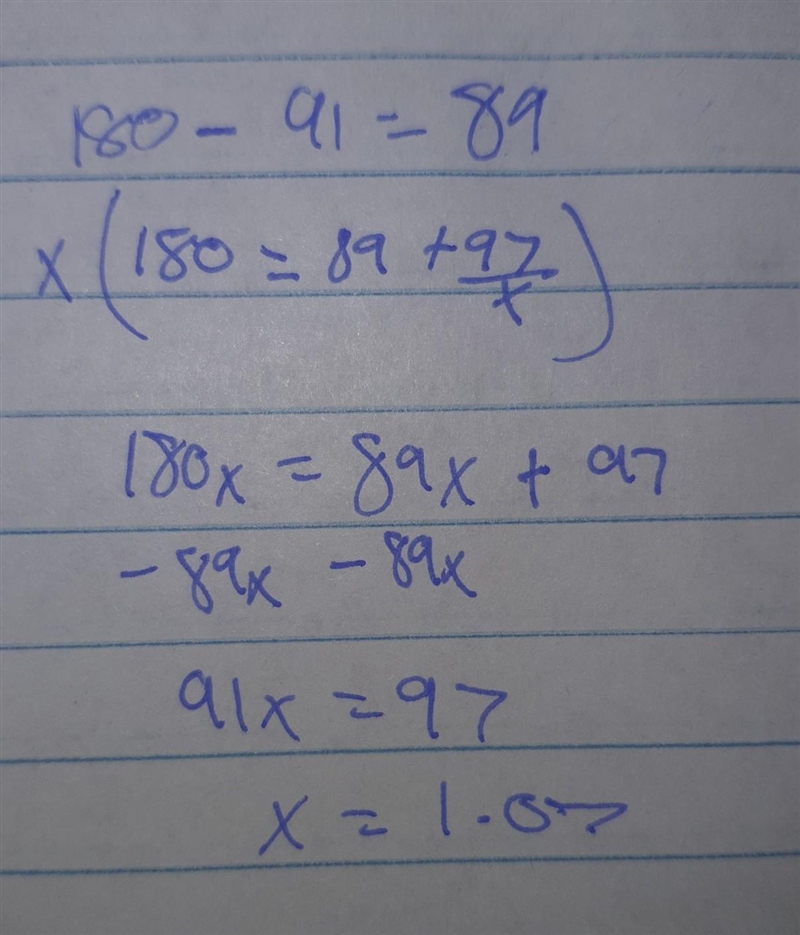 180 - 91 = 89
x (180 = 89 + 97/x)
180x = 89x + 97
- 89x - 89x
91x = 97
x = 1.07